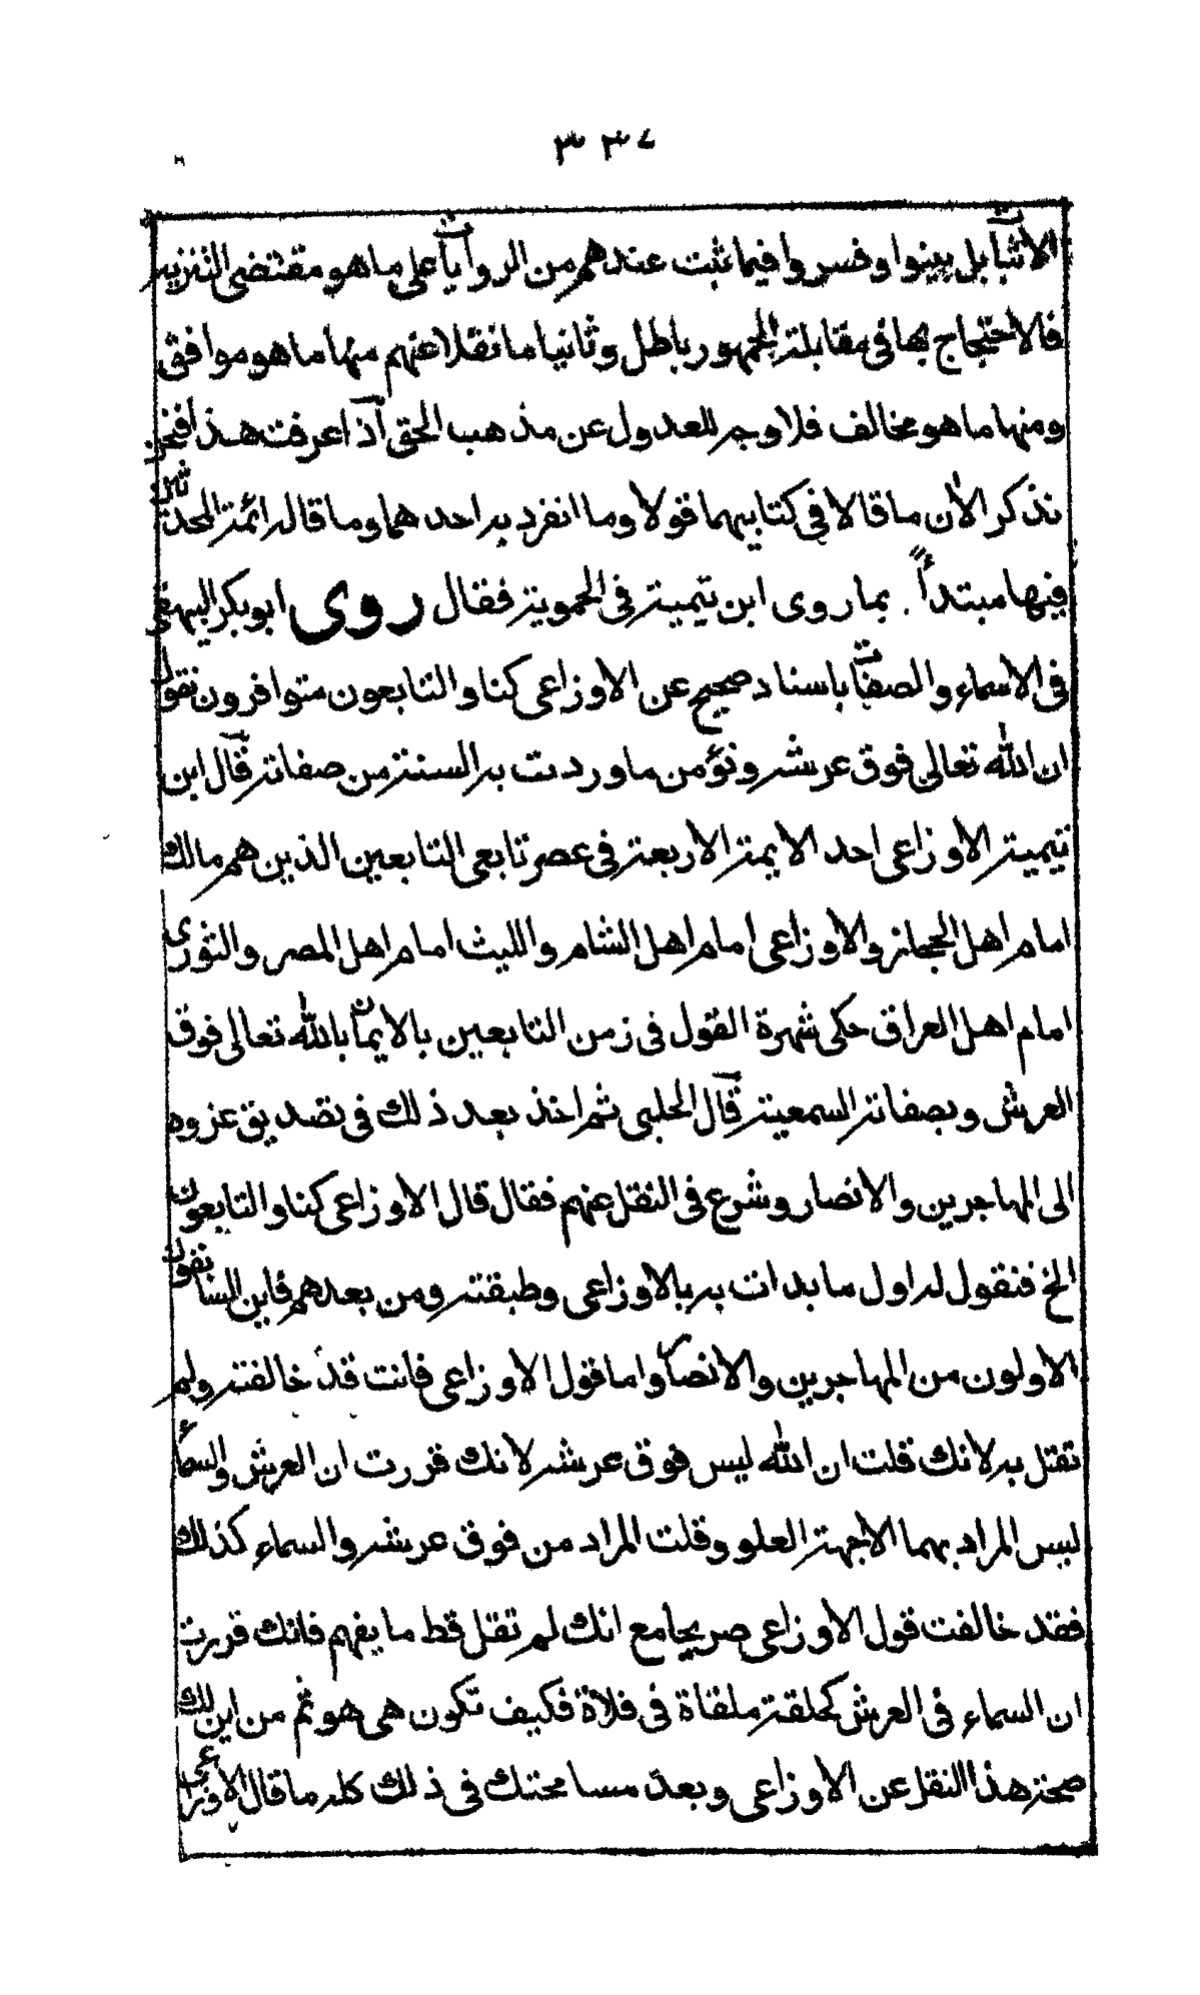 ٣٣٧
الاثبات بل بينوا وفسروا فيما ثبت عندهم من الروايات على ما هو مقتضى التنزيه
فالاحتجاج بها في مقابلة الجمهور باطل وثانيا ما نقلا عنهم منها ما هو موافق
ومنها ما هو مخالف فلا وجه للعدول عن مذهب الحق اذا عرفت هذا فنحن
نذكر الأن ما قالا في كتابيهما قولا وما انفرد به احدهما وما قاله ائمة المحدثين
فيها مبتدأً بما روى ابن تيمية في الحموية فقال روى ابو بكر البيهقي
في الاسماء والصفات باسناد صحيح عن الاوزاعي كنا والتابعون متوافرون نقول
ان الله تعالى فوق عرشه ونؤمن ما وردت به السنة من صفاته قال ابن
تيمية الاوزاعي احد الايمة الاربعة في عصر تابعي التابعين الذين هم مالك
امام اهل الحجاز والاوزاعي امام اهل الشام والليث امام اهل المصر والثوري
امام اهل العراق حكى شهرة القول في زمن التابعين بالايمان بالله تعالى فوق
العرش وبصفاته السمعية قال الحلبي ثم اخذ بعد ذلك في تصديق عزوه
الى المهاجرين والانصار وشرع في النقل عنهم فقال قال الاوزاعي كنا والتابعون
الخ فنقول له اول ما بدات به بالاوزاعي وطبقته ومن بعدهم فاين السابقون
الاولون من المهاجرين والانصار واما قول الاوزاعي فانت قد خالفته ولم
تقتل به لانك قلت ان الله ليس فوق عرشه لانك قررت ان العرش والسماء
ليس المراد بهما الا جهة العلو وقلت المراد من فوق عرشه والسماء كذلك
فقد خالفت قول الاوزاعي صريحا مع انك لم تقل قط ما يفهم فانك قررت
ان السماء في العرش كحلقة ملقاة في فلاة فكيف تكون هي هو ثم من اين لك
صحة هذا النقل عن الاوزاعي وبعد مسامحتك في ذلك كله ما قال الاوزاعي